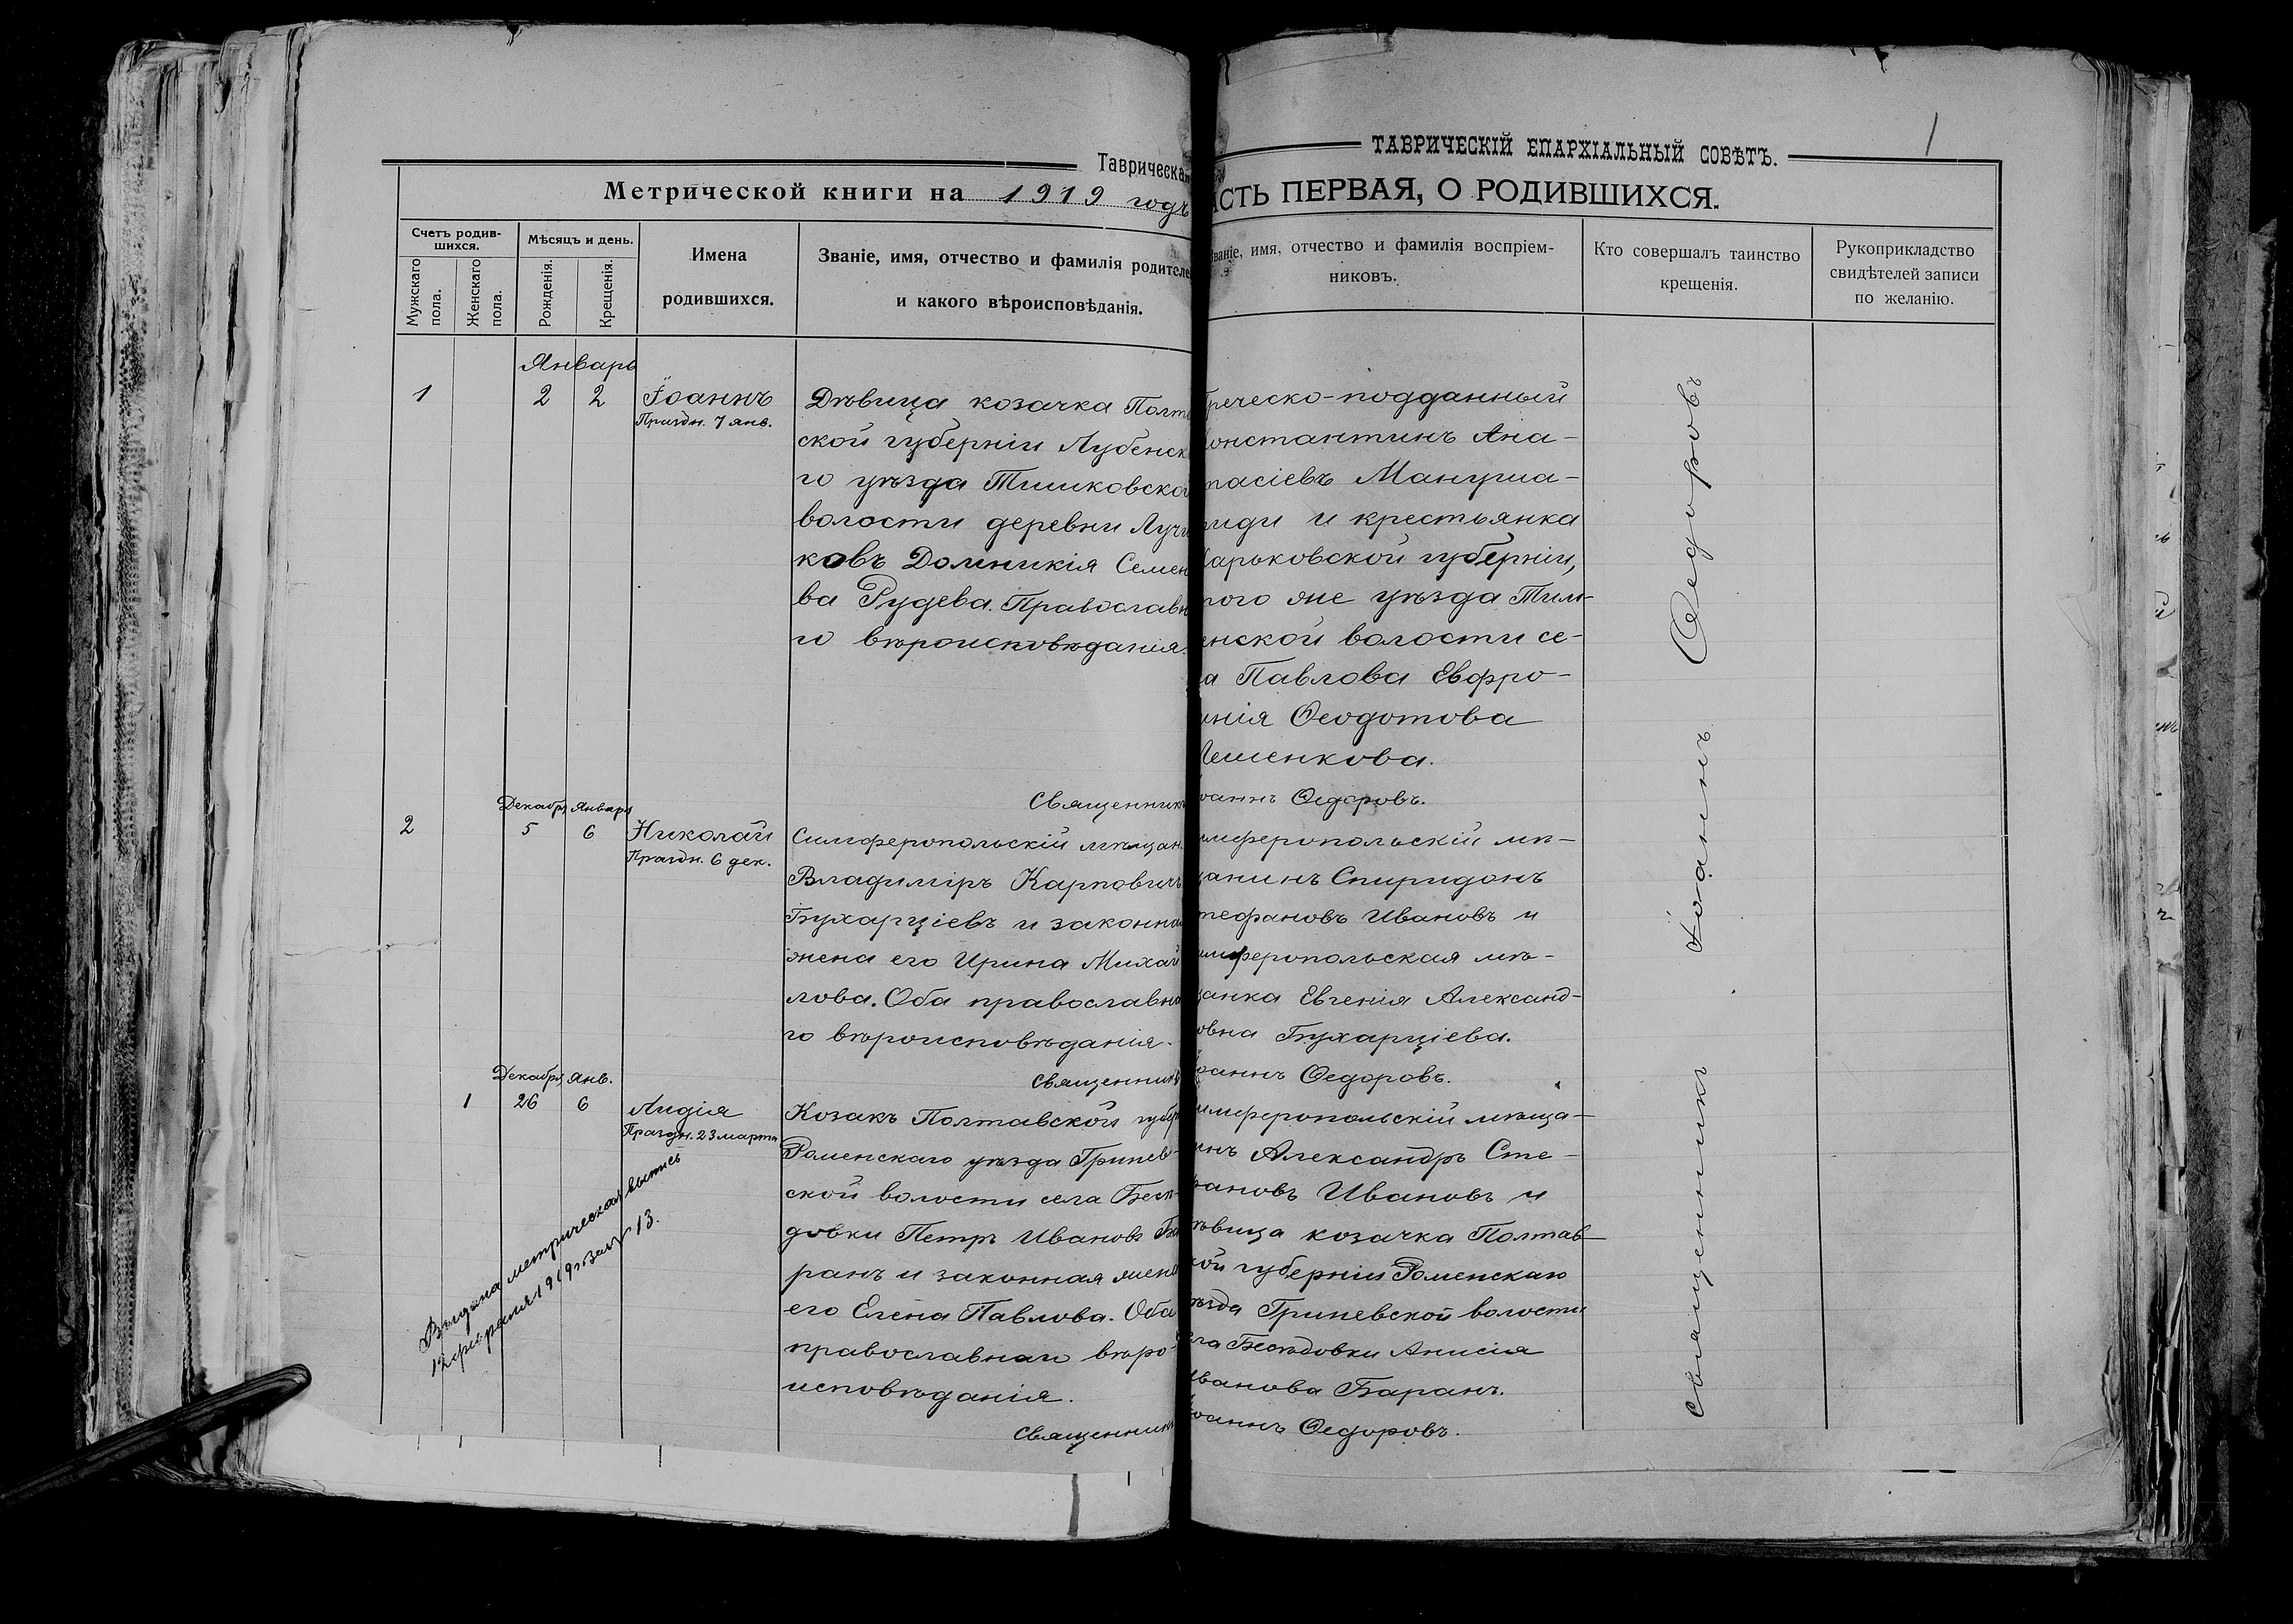 1
ТАВРИЧЕСКІЙ ЕПАРХІАЛЬНЫЙ СОВѢТЪ.
Таврическа
Метрической книги на 1919 годъ
АСТЬ ПЕРВАЯ, О РОДИВШИХСЯ.
Счетъ родив-
шихся.
Мужскаго
пола.
Женскаго
пола.
Мѣсяцъ и день.
Рожденія.
Крещенія.
Имена
родившихся.
Званіе, имя, отчество и фамилія родителе
и какого вѣроисповѣданія.
Званіе, имя, отчество и фамилія воспріем-
никовъ.
Кто совершалъ таинство
крещенія.
Рукоприкладство
свидѣтелей записи
по желанію.
Январь
1 2 2 Іоаннъ
Праздн. 7 янв.
Дѣвица козачка Полта
ской губерніи Лубенск
го уѣзда Тишковской
волости деревни Лучи
ковъ Домникія Семен
ва Рудева. Православн
го вѣроисповѣданія.
Священникъ
Греческо-подданный
Константинъ Ана-
тасіевъ Мануша-
риди и крестьянка
Харьковской губерніи,
того же уѣзда Тим-
енской волости се-
ла Павлова Евфро-
инія Ѳеодотова
Лешенкова.
Іоаннъ Ѳедоровъ.
Декабрь Январь
2 5 6 Николай
Праздн. 6 дек.
Симферопольскій мѣщан.
Владиміръ Карповичъ
Бухарціевъ и законная
жена его Ирина Михай
лова. Оба православна
го вѣроисповѣданія.
Священникъ
имферопольскій мѣ-
щанинъ Спиридонъ
тефановъ Ивановъ и
имферопольская мѣ-
щанка Евгенія Александ-
овна Бухарціева.
Іоаннъ Ѳедоровъ.
Декабрь Янв.
1 26 6 Лидія
Праздн. 23 марта
Козакъ Полтавской губер
Роменскаго уѣзда Грипев-
ской волости села Бесѣ-
довки Петръ Ивановъ Ба
ранъ и законная жена
его Елена Павлова. Оба
православнаго вѣро-
исповѣданія.
Священникъ
имферопольскій мѣща-
инъ Александръ Сте-
фановъ Ивановъ и
ѣвица козачка Полтав-
кой губерніи Роменскаго
уѣзда Грипевской волости
ела Бесѣдовки Анисія
Иванова Баранъ.
Іоаннъ Ѳедоровъ.
Выдана метрическая выпись
12 февраля 1919 г. за № 13.
Священникъ Іоаннъ Ѳедоровъ